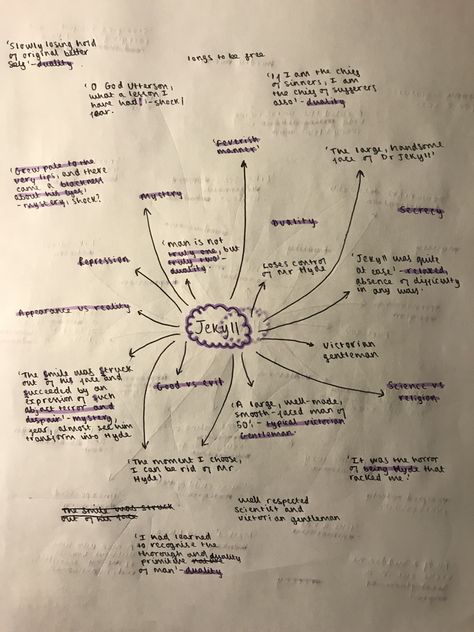 'Slowly losing hold
of original better
self'- duality
longs to be free
'O God Utterson,
what a lesson I
have had!'-shock/
fear.
'If I am the chief
of sinners, I am
the chief of sufferers
also'- duality
feverish
manner
'The large, handsome
face of Dr Jekyll'
'Grew pale to the
very lips, and there
came a blackness
about his eyes'
-mystery, shock?
Mystery
Duality
Secrecy
Repression
'Man is not
truly one, but
truly two'-
duality.
Loses control
of Mr Hyde
'Jekyll was quite
at ease'-relaxed,
absence of difficulty
in any way.
Appearance vs reality
Jekyll
Victorian
gentleman
'The smile was struck
out of his face and
succeeded by an
expression of such
abject terror and
despair'- mystery,
fear, almost see him
transform into Hyde
Good vs evil
'A large, well-made,
smooth-faced man of
50'- typical victorian
Gentleman
Science vs
religion.
'The moment I choose,
I can be rid of Mr
Hyde'
'It was the horror
of being Hyde that
racked me.'
The smile was struck
out of his face
well respected
scientist and
victorian gentleman
'I had learned
to recognise the
thorough and duality
primitive nature
of man'- duality